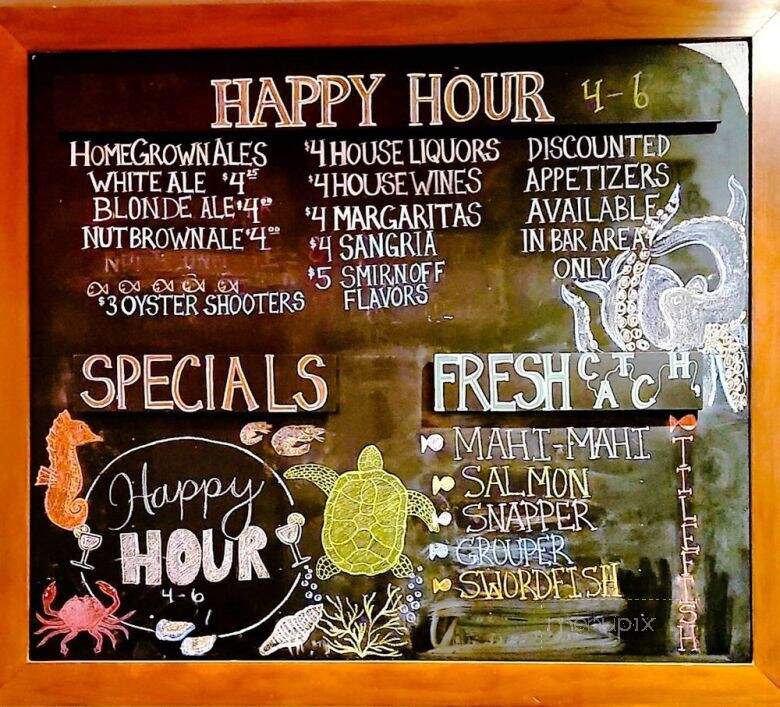 HAPPY HOUR 4-6
HOMEGROWN ALES
WHITE ALE $4.25
BLONDE ALE $4.00
NUT BROWN ALE $4.00
$3 OYSTER SHOOTERS
$4 HOUSE LIQUORS
$4 HOUSE WINES
$4 MARGARITAS
$4 SANGRIA
$5 SMIRNOFF
FLAVORS
DISCOUNTED
APPETIZERS
AVAILABLE
IN BAR AREA
ONLY
SPECIALS
Happy
HOUR
4-6
FRESH CATCH
MAHI-MAHI
SALMON
SNAPPER
GROUPER
SWORDFISH
TILEFISH
menupix